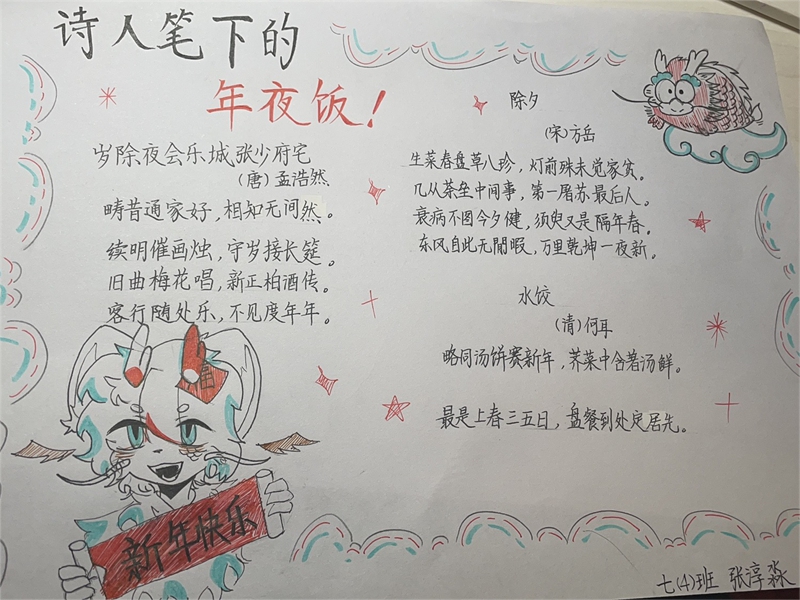 诗人笔下的
年夜饭！
岁除夜会乐城张少府宅
(唐)孟浩然
畴昔通家好，相知无间然。
续明催画烛，守岁接长筵。
旧曲梅花唱，新正柏酒传。
客行随处乐，不见度年年。
除夕
(宋)方岳
生菜春盘草八珍，灯前殊未觉家贫。
几从荼垒中间事，第一屠苏最后人。
衰病不图今夕健，须臾又是隔年春。
东风自此无閒暇，万里乾坤一夜新。
水饺
(清)何耳
略同汤饼赛新年，荠菜中含著汤鲜。
最是上春三五日，盘餐到处定居先。
福
新年快乐
七(4)班 张淳淼